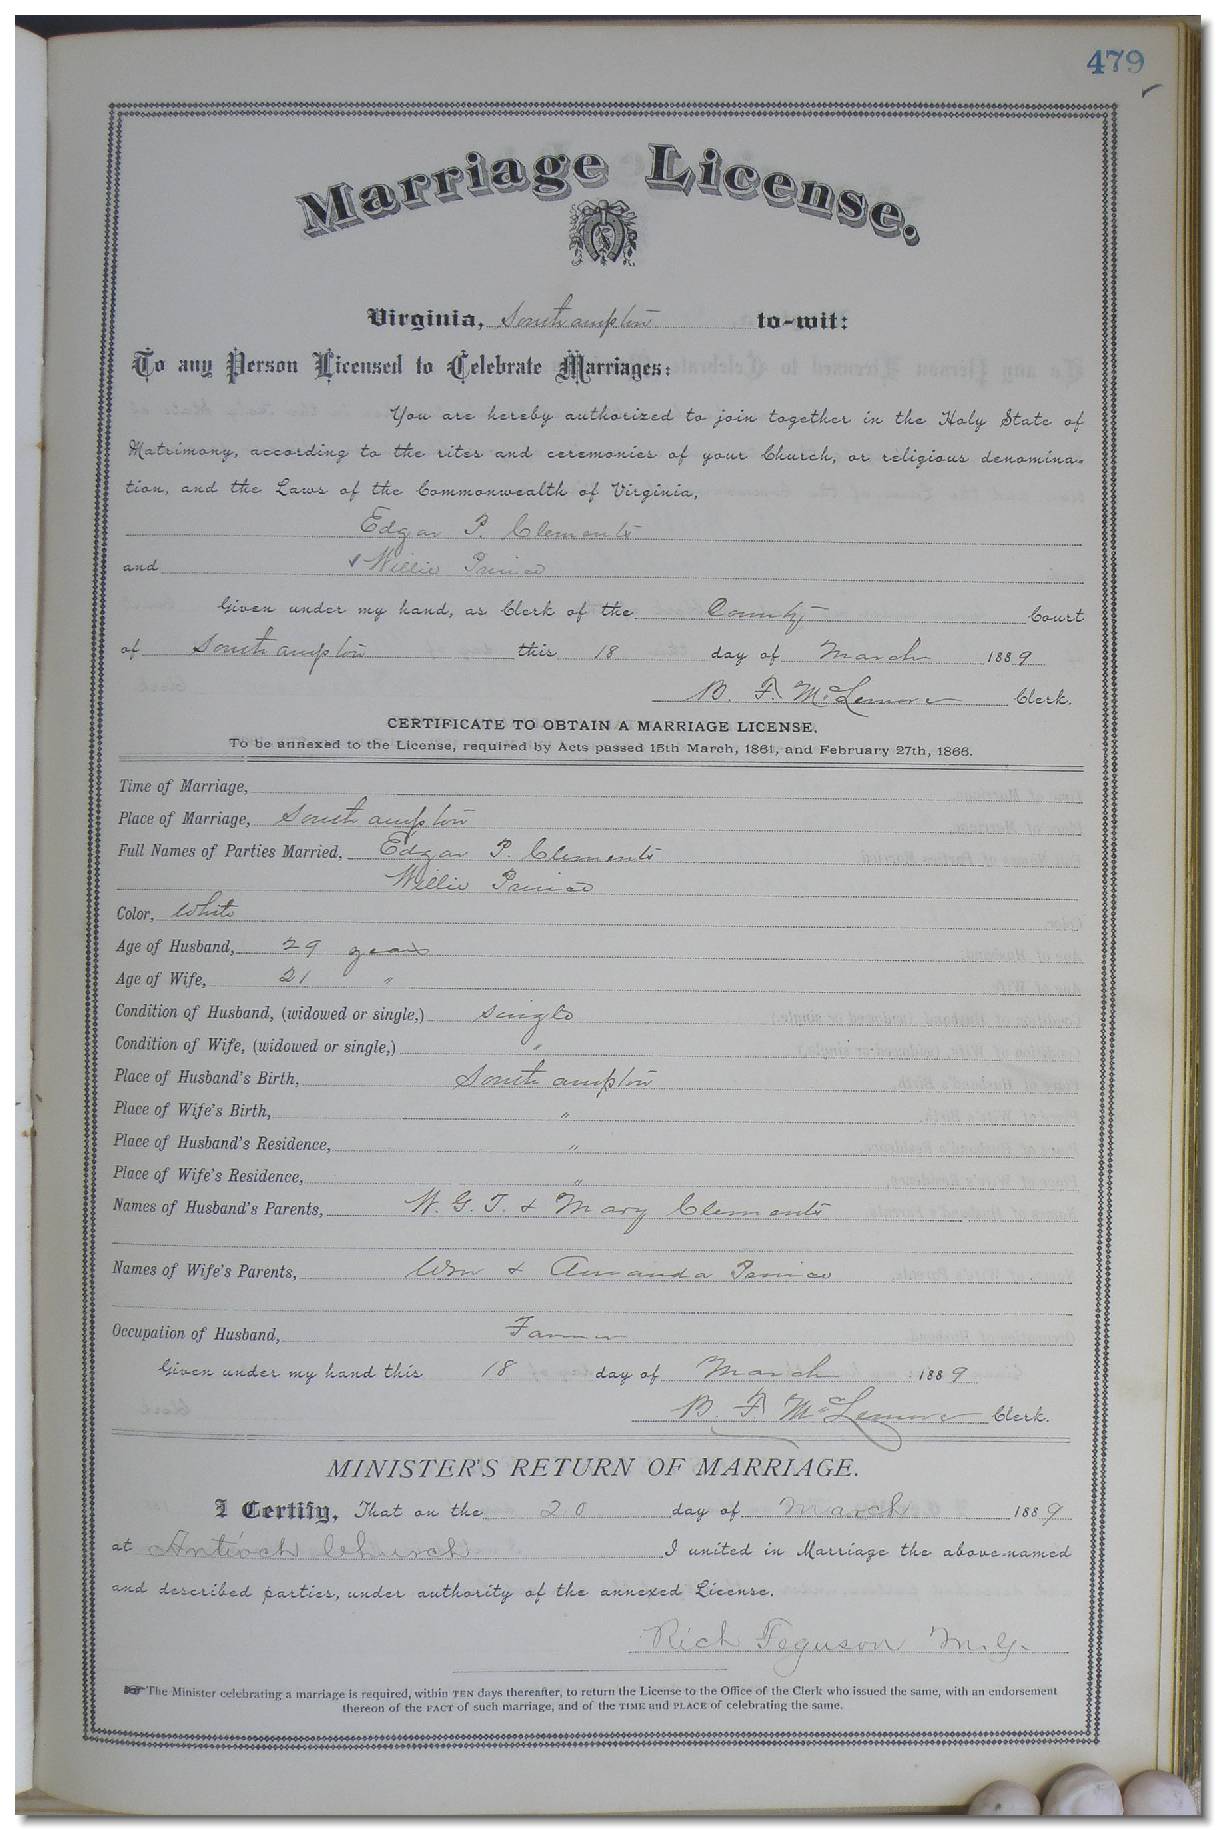 479
Marriage License.
Virginia, Southampton to-wit:
To any Person Licensed to Celebrate Marriages:
You are hereby authorized to join together in the Holy State of
Matrimony, according to the rites and ceremonies of your Church, or religious denomina-
tion, and the Laws of the Commonwealth of Virginia,
Edgar P. Clements
and Willie Prince
Given under my hand, as Clerk of the County Court
of Southampton this 18 day of March 1889
B. F. McLemore Clerk.
CERTIFICATE TO OBTAIN A MARRIAGE LICENSE.
To be annexed to the License, required by Acts passed 15th March, 1861, and February 27th, 1866.
Time of Marriage,
Place of Marriage, Southampton
Full Names of Parties Married, Edgar P. Clements
Willie Prince
Color, White
Age of Husband, 29 years
Age of Wife, 21 "
Condition of Husband, (widowed or single,) single
Condition of Wife, (widowed or single,) "
Place of Husband's Birth, Southampton
Place of Wife's Birth, "
Place of Husband's Residence, "
Place of Wife's Residence, "
Names of Husband's Parents, W. G. T. & Mary Clements
Names of Wife's Parents, Wm & Amanda Prince
Occupation of Husband, Farmer
Given under my hand this 18 day of March 1889
B. F. McLemore Clerk.
MINISTER'S RETURN OF MARRIAGE.
I Certify, That on the 20 day of March 1889
at Antioch Church I united in Marriage the above-named
and described parties, under authority of the annexed License.
Rich Feguson M.G.
☞ The Minister celebrating a marriage is required, within TEN days thereafter, to return the License to the Office of the Clerk who issued the same, with an endorsement
thereon of the FACT of such marriage, and of the TIME and PLACE of celebrating the same.